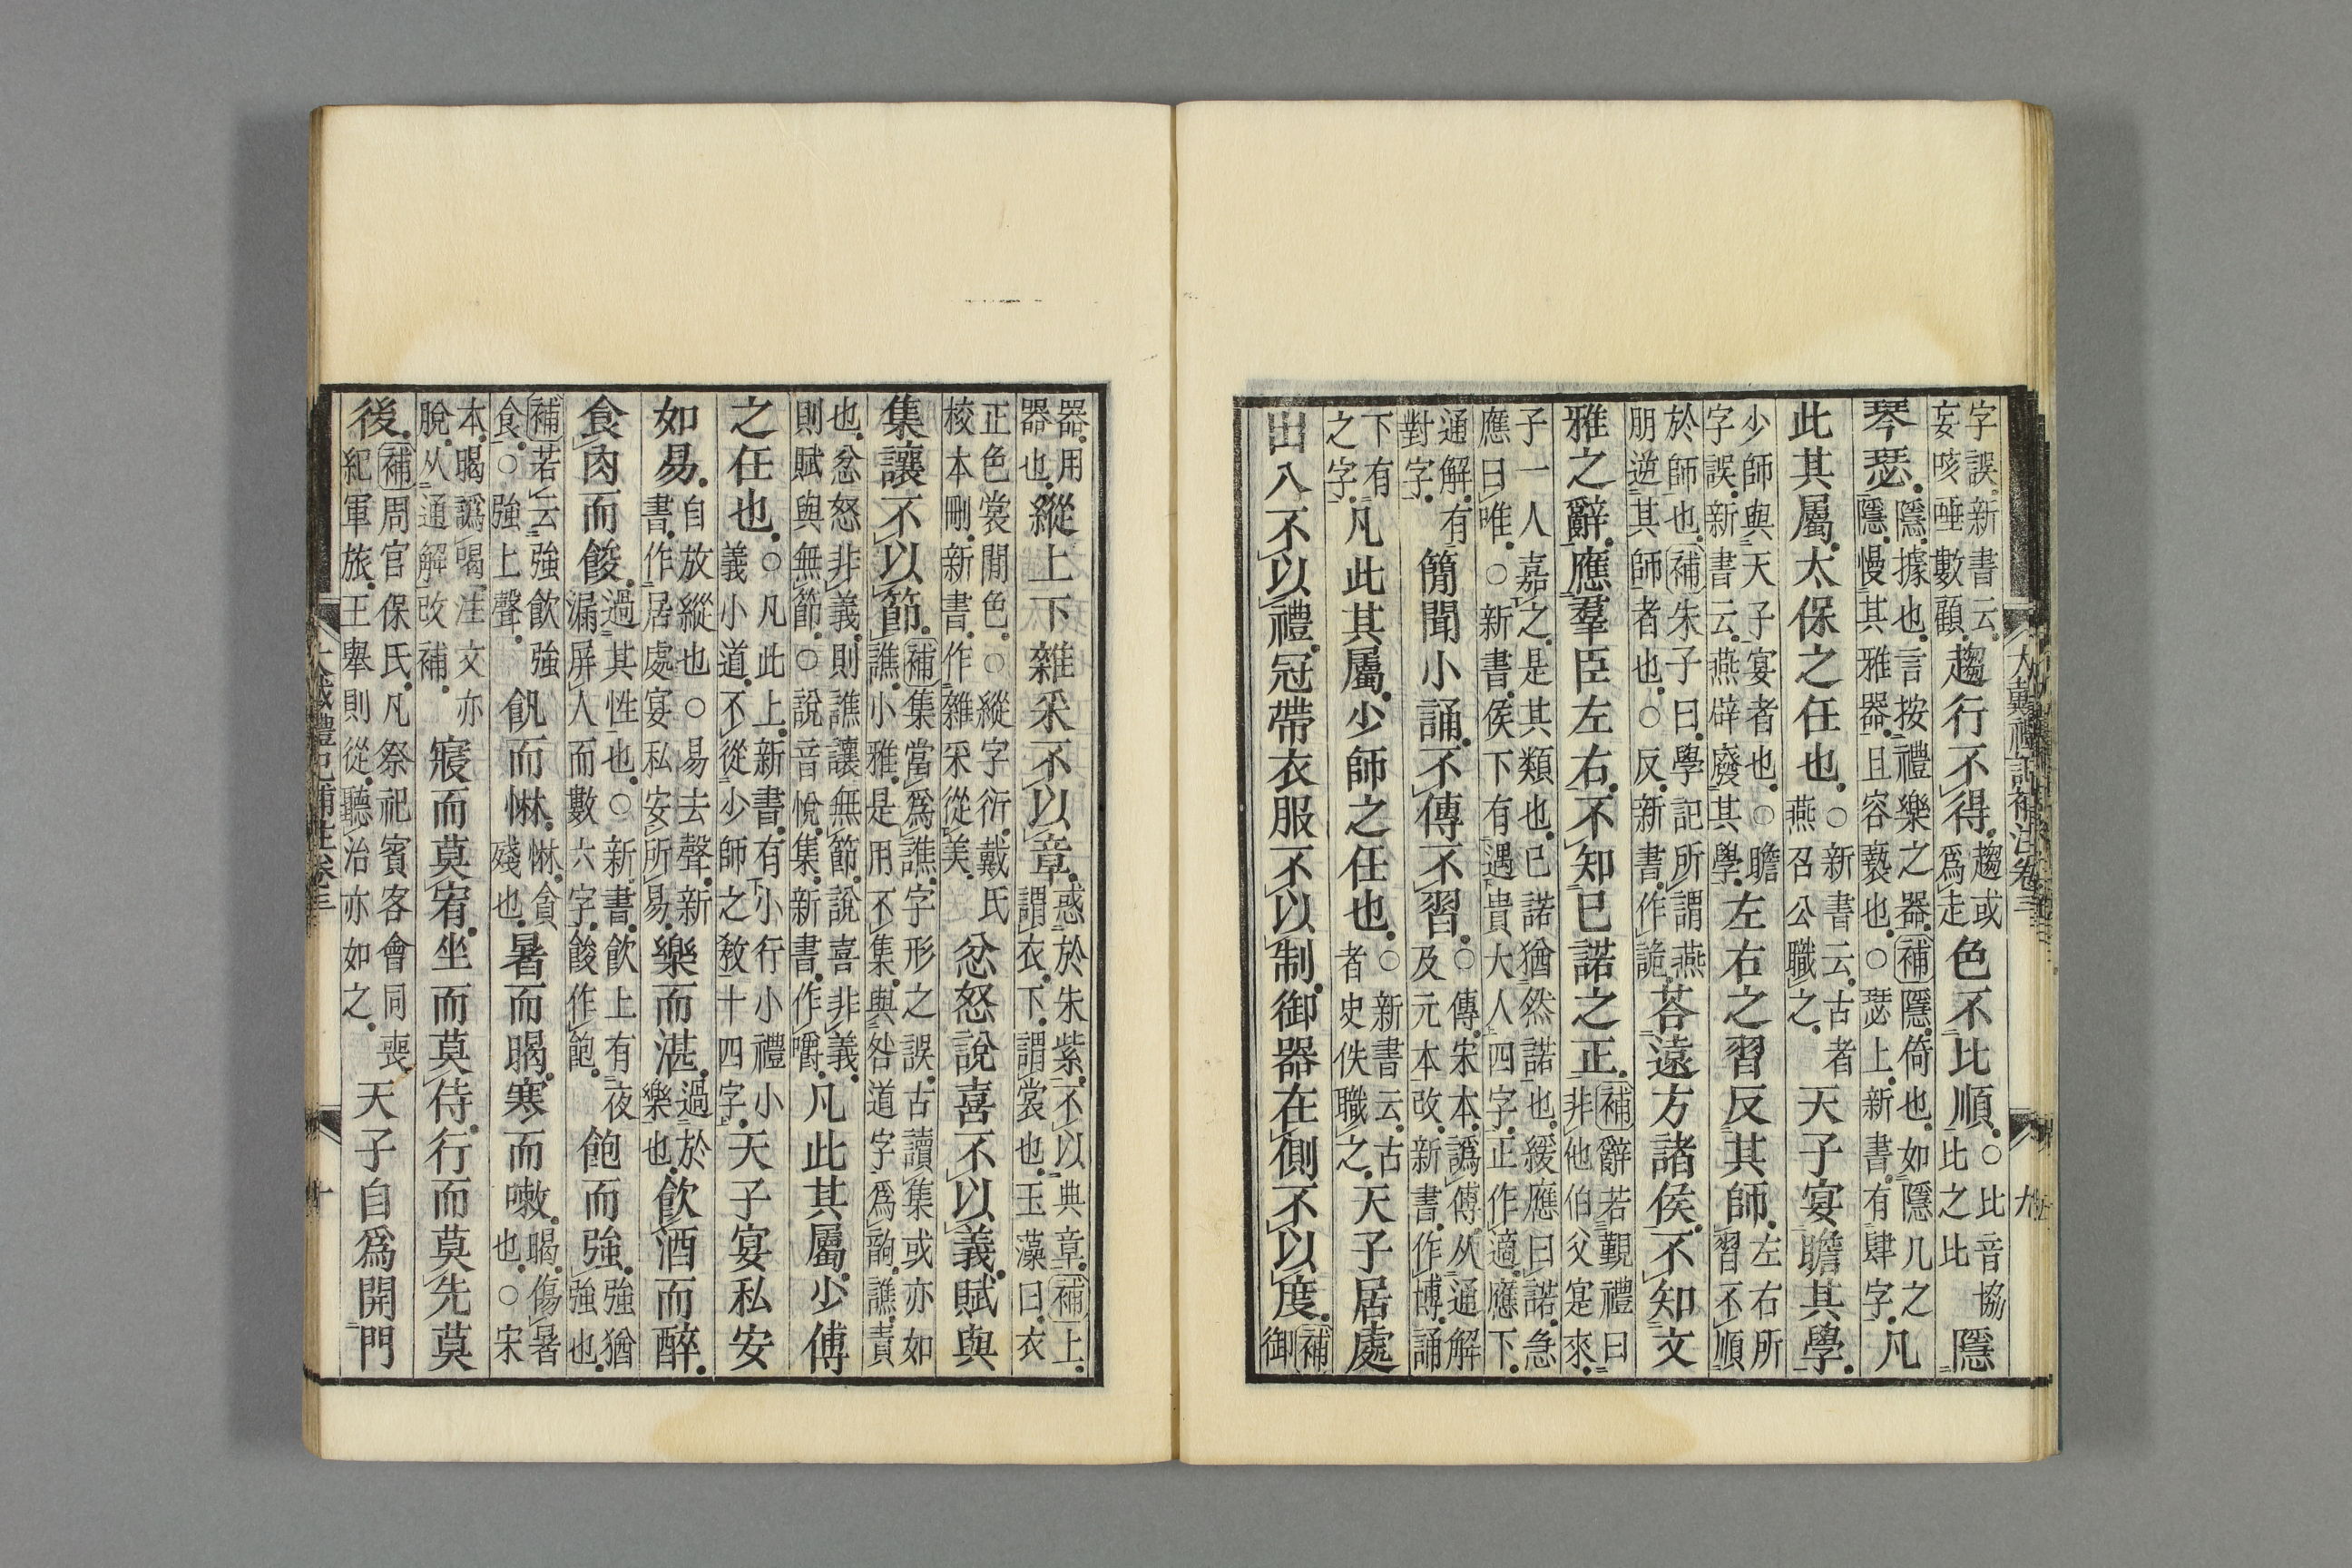 大戴禮記補注卷三　九
字誤新書云妄咳唾數顧趨行不得趨或爲走色不比順○比音協比之比隱
琴瑟隱據也言按禮樂之器補隱倚也如隱几之隱慢其雅器且容褻也○瑟上新書有肆字凡
此其屬太保之任也○新書云古者燕召公職之天子宴瞻其學
少師與天子宴者也○瞻字誤新書云燕辟廢其學左右之習反其師左右所習不順
於師也補朱子曰學記所謂燕朋逆其師者也○反新書作詭荅遠方諸侯不知文
雅之辭應羣臣左右不知已諾之正補辭若覲禮曰非他伯父寔來
子一人嘉之是其類也已諾猶然諾也緩應曰諾急應曰唯○新書侯下有遇貴大人四字正作適應下
通解有對字簡聞小誦不傳不習○傳宋本譌傅从通解及元本改新書作博誦
下有之字凡此其屬少師之任也○新書云古者史佚職之天子居處
出入不以禮冠帶衣服不以制御器在側不以度補御
器用器也縱上下雜采不以章惑於朱紫不以典章補上謂衣下謂裳也玉藻曰衣
正色裳閒色○縱字衍戴氏校本刪新書作雜采從美忿怒說喜不以義賦與
集讓不以節補集當爲譙字形之誤古讀集或亦如譙小雅是用不集與咎道字爲韵譙責
也忿怒非義則譙讓無節說喜非義則賦與無節○說音悅集新書作嚼凡此其屬少傅
之任也○凡此上新書有小行小禮小義小道不從少師之敎十四字天子宴私安
如易自放縱也○易去聲新書作居處宴私安所易樂而湛過於樂也飲酒而醉
食肉而餕過其性也○新書飲上有夜漏屏人而數六字餕作飽飽而強強猶強也
補若云強飲強食○強上聲飢而惏惏貪殘也暑而暍寒而嗽暍傷暑也○宋
本暍譌喝注文亦脫从通解改補寢而莫宥坐而莫侍行而莫先莫
後補周官保氏凡祭祀賓客會同喪紀軍旅王舉則從聽治亦如之天子自爲開門
大戴禮記補注卷三　十